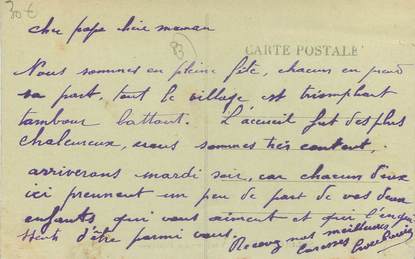 30 €
cher papa chère maman
83
CARTE POSTALE
Nous sommes en pleine fête, chacun en prend
sa part, tout le village est triomphant
tambour battant. L'accueil fut des plus
chaleureux, nous sommes très content,
arriverons mardi soir, car chacun d'eux
ici prennent un peu de part de vos deux
enfants qui vous aiment et qui
d'être parmi vous. Recevez nos meilleures
caresses